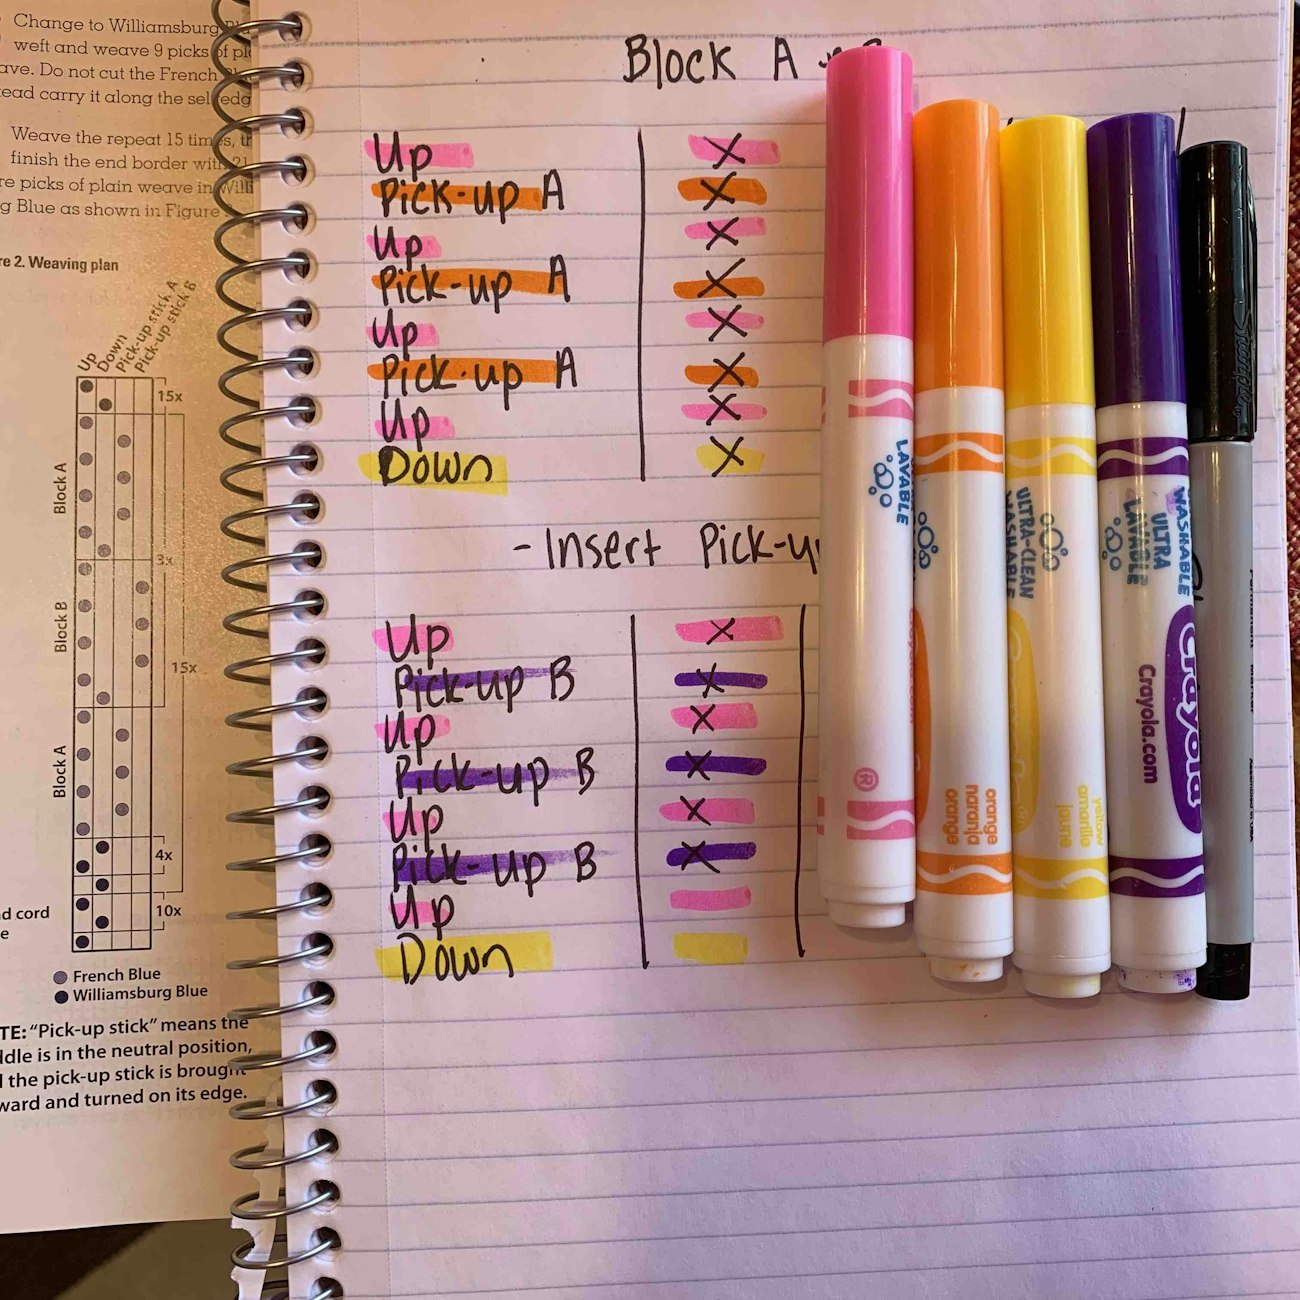 Change to Williamsburg
weft and weave 9 picks of
Do not cut the French
carry it along the
Weave the repeat 15 times,
finish the end border with
picks of plain weave in
Blue as shown in Figure
2. Weaving plan
Up
Down
Pick-up stick A
Pick-up stick B
15x
Block A
3x
Block B
15x
Block A
4x
10x
cord
French Blue
Williamsburg Blue
"Pick-up stick" means the
is in the neutral position,
the pick-up stick is brought
and turned on its edge.
Block A
Up
Pick-up A
Up
Pick-up A
Up
Pick-up A
Up
Down
- Insert Pick-up
Up
Pick-up B
Up
Pick-up B
Up
Pick-up B
Up
Down
X
X
X
X
X
X
X
X
X
X
X
X
X
X
LAVABLE
®
orange
naranja
orange
ULTRA-CLEAN
WASHABLE
yellow
amarillo
jaune
WASHABLE
ULTRA
LAVABLE
Crayola
Crayola.com
Sharpie